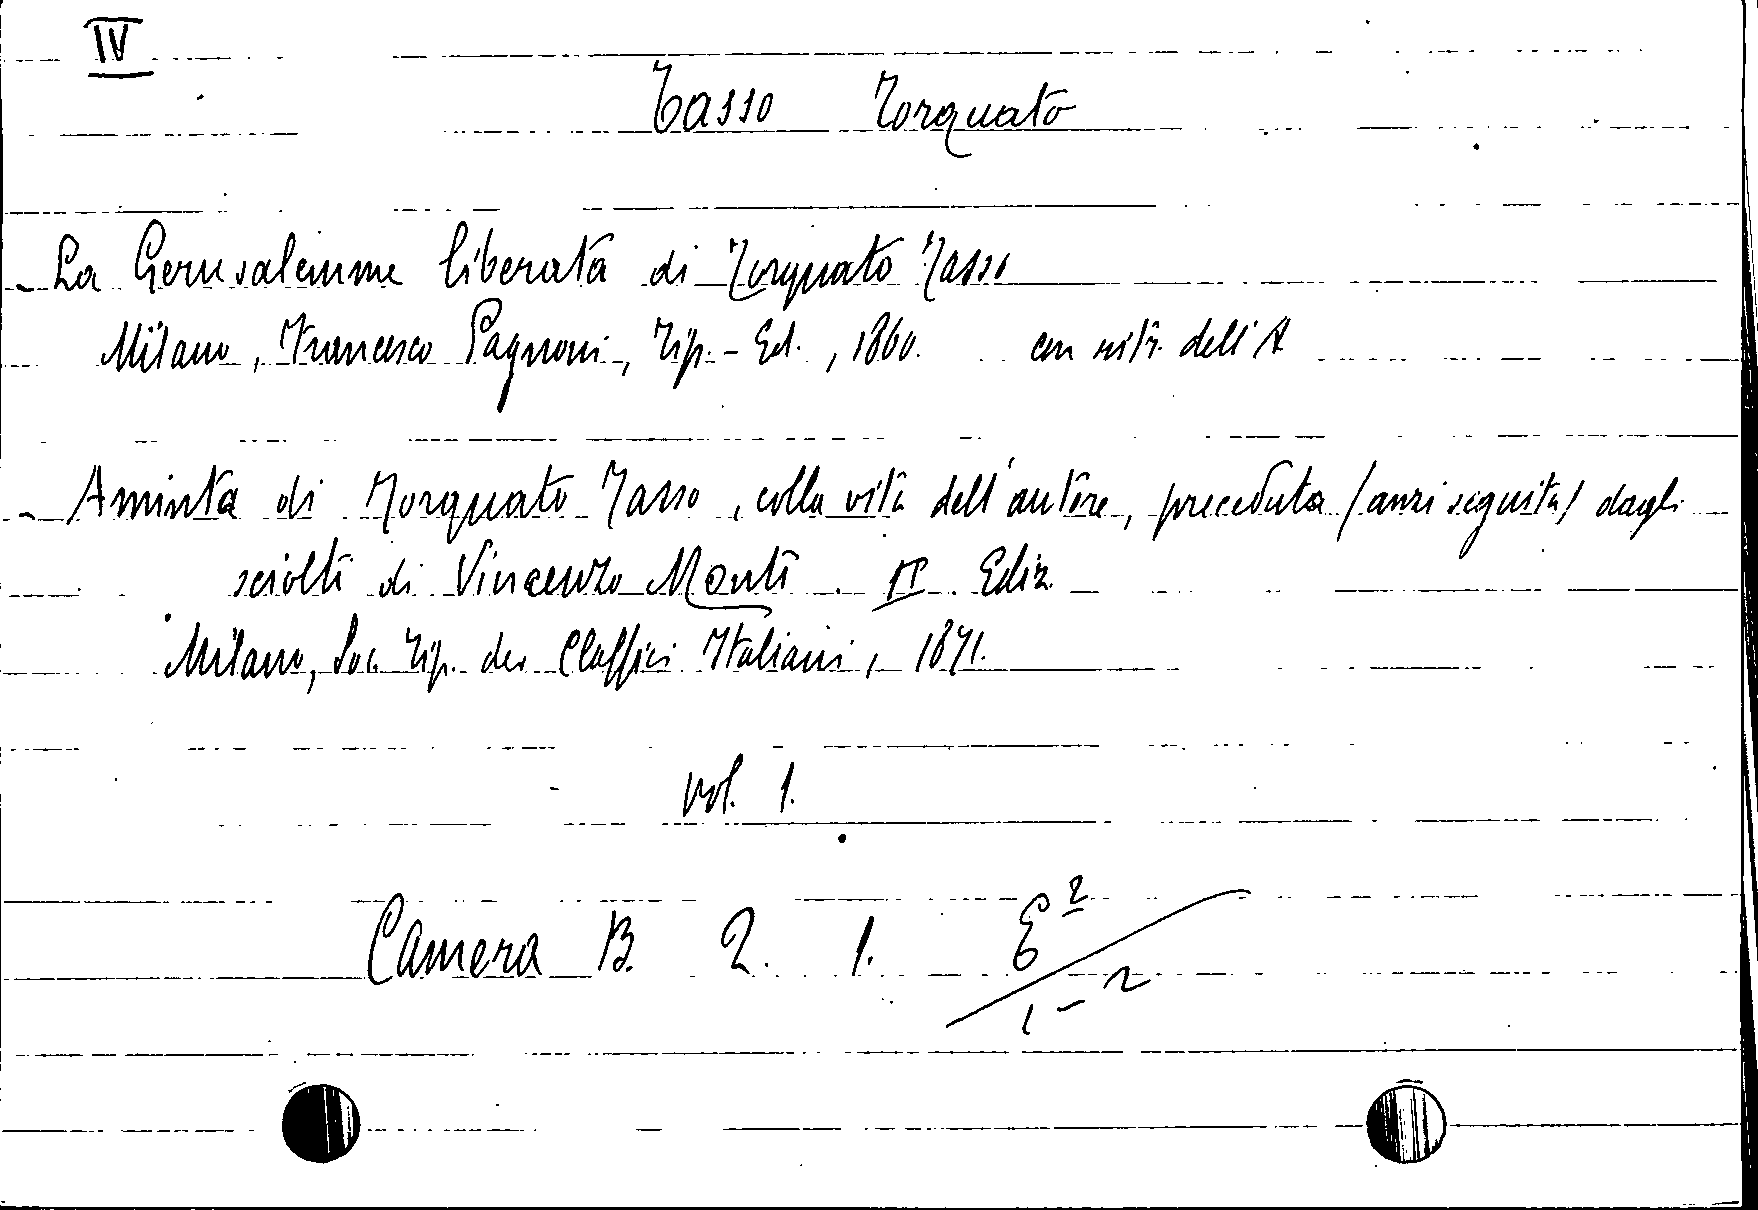 IV
Tasso Torquato
- La Gerusalemme liberata di Torquato Tasso
Milano, Francesco Pagnoni, Tip.-Ed., 1860. con ritr. dell'A
- Aminta di Torquato Tasso, colla vita dell'autore, preceduta (anzi seguita) dagli
sciolti di Vincenzo Monti. II Ediz.
Milano, Soc. Tip. dei Classici Italiani, 18
vol. 1.
Camera B. 2. 1. E 2
1-2